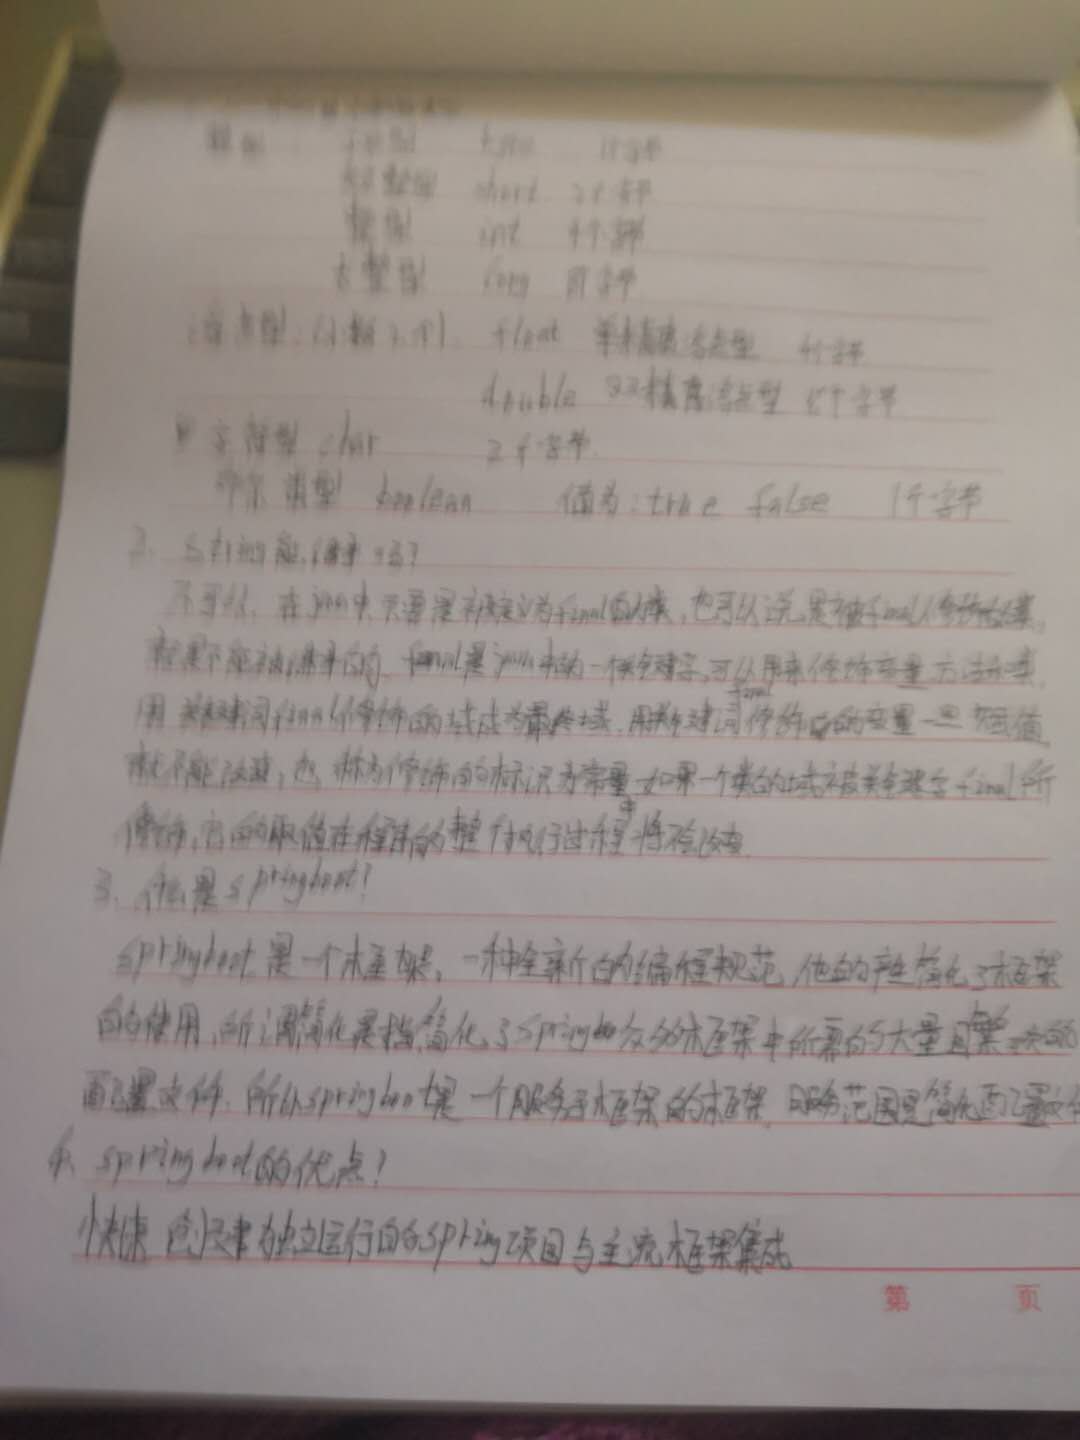 整型： 字节型 byte 1个字节
短整型 short 2个字节
整型 int 4个字节
长整型 long 8个字节
浮点型: float 单精度浮点型 4个字节
double 双精度浮点型 8个字节
字符型 char 2个字节.
布尔类型 boolean 值为:true false 1个字节
2. String能继承吗?
不可以, 在java中, 只要是被定义为final的类, 也可以说是被final修饰的类,
就是不能被继承的. final是java中的一个关键字, 可以用来修饰变量 方法和类.
用关键词final修饰的域成为最终域. 用关键词final修饰的变量一旦赋值,
就不能改变, 也称为修饰的标识为常量. 如果一个类的域被关键字final所
修饰, 它的取值在程序的整个执行过程中将不会改变.
3. 什么是springboot?
springboot是一个框架, 一种全新的编程规范, 他的产生简化了框架
的使用, 所谓简化是指简化了Spring众多的框架中所需的大量且繁琐的
配置文件. 所以springboot是一个服务于框架的框架, 服务范围是简化配置文件
4. springboot的优点?
快速创建独立运行的spring项目与主流框架集成
第 页